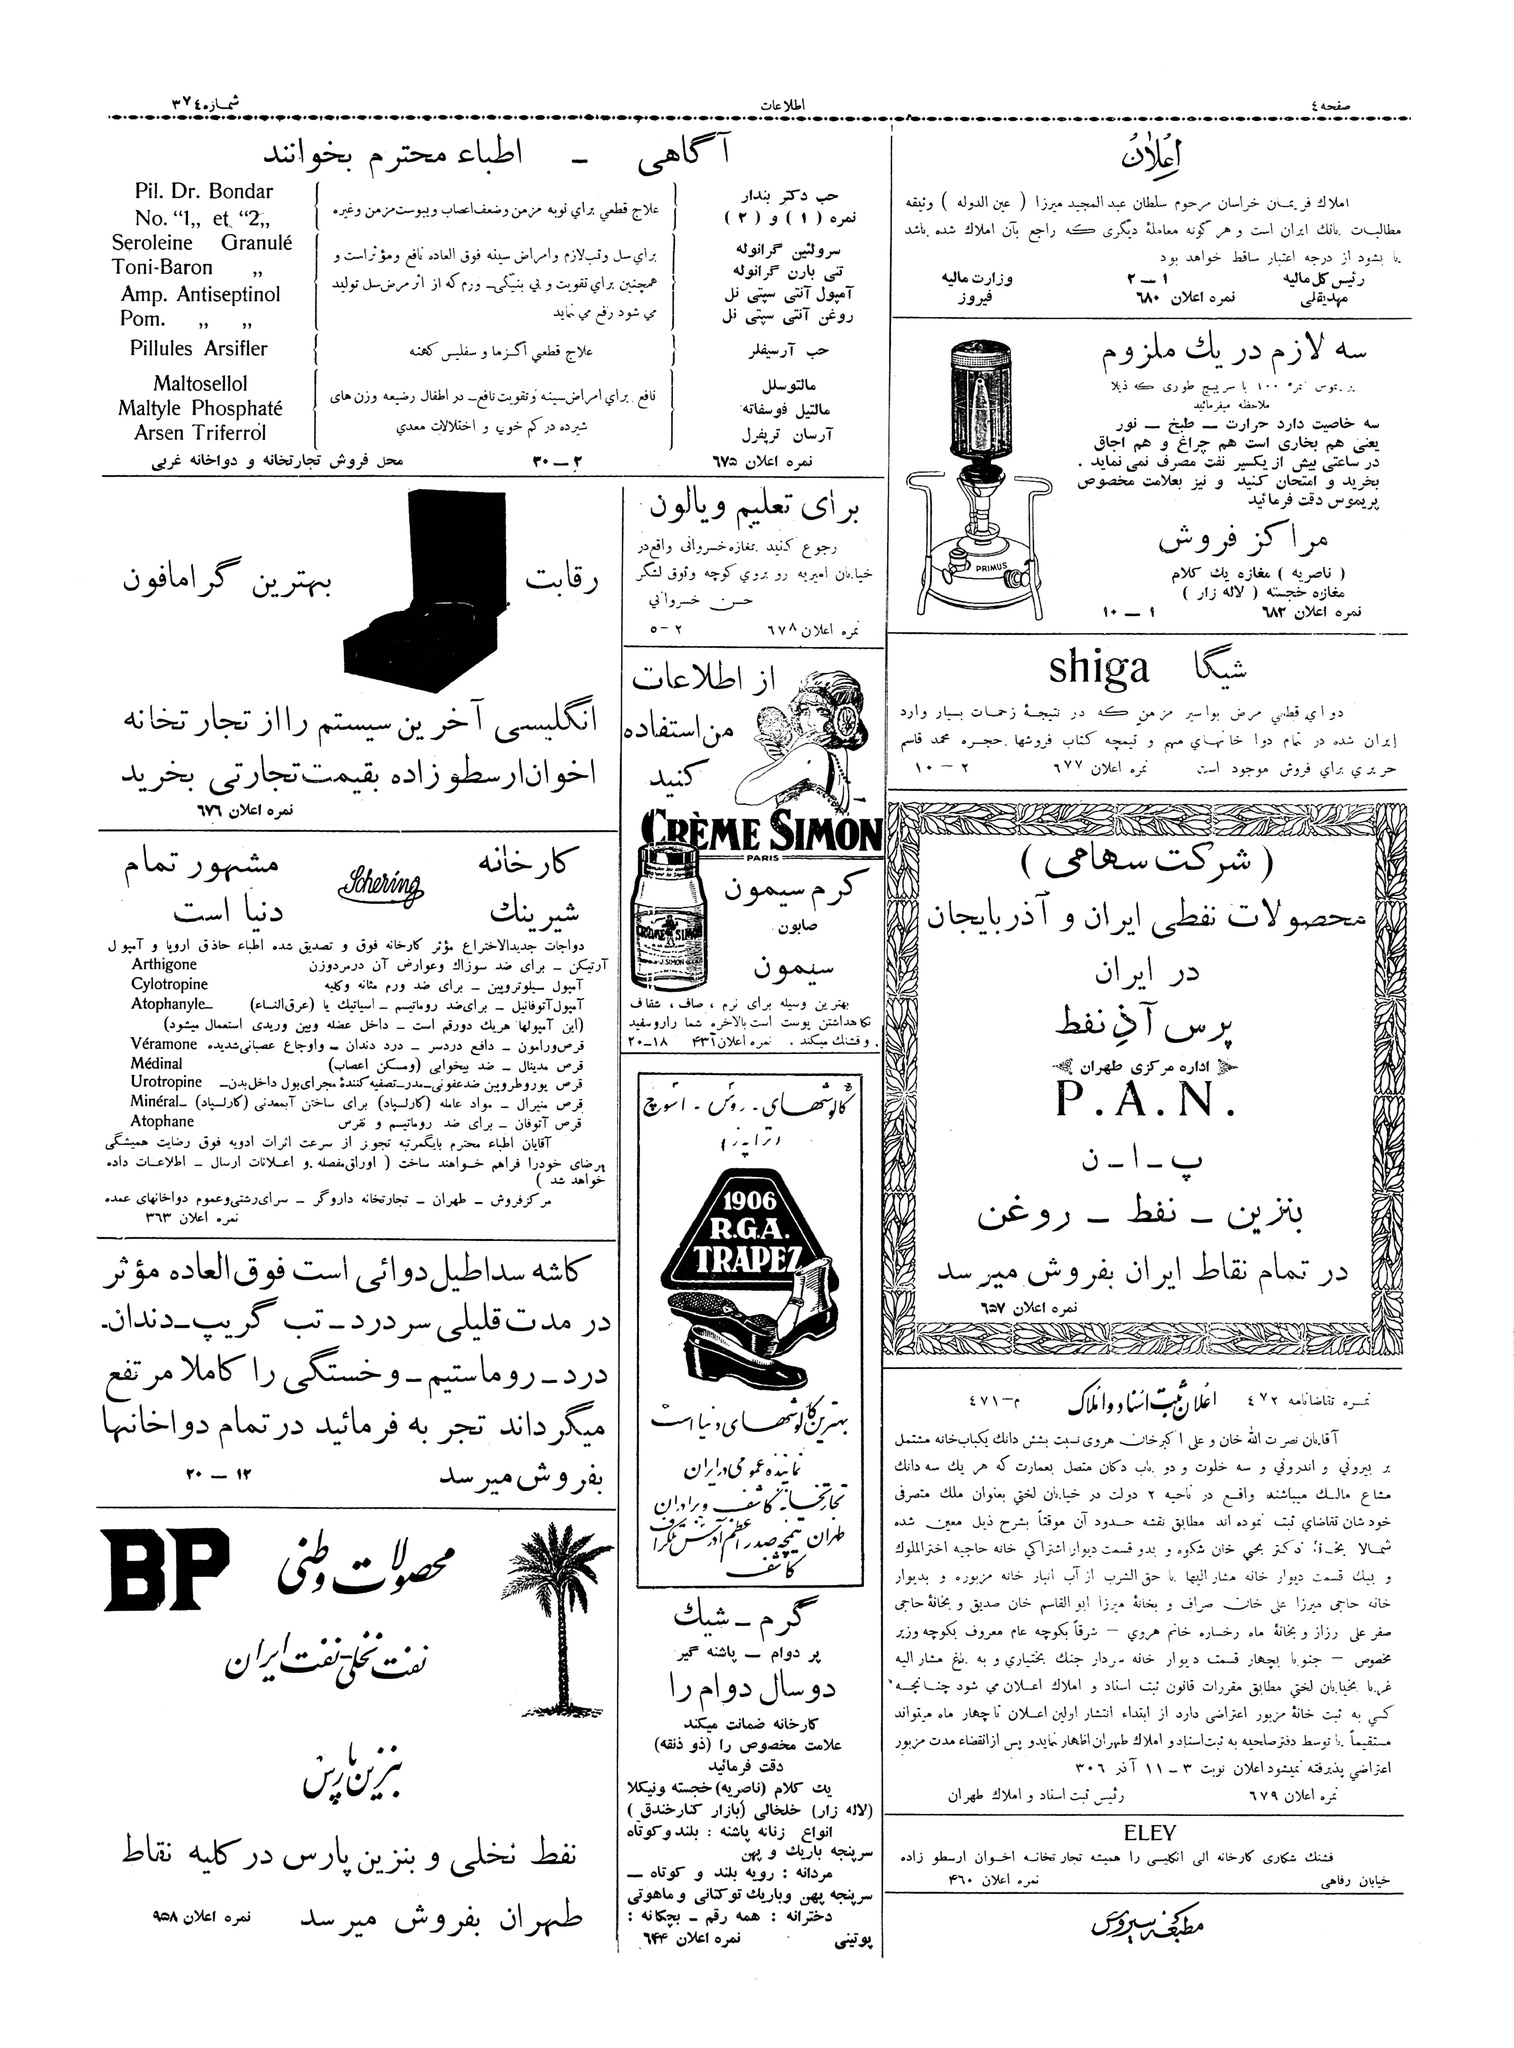 صفحه ٤
اطلاعات
شماره ٣٧٤
اعلان
املاك فریمان خراسان مرحوم سلطان عبدالمجید میرزا ( عین الدوله ) وثیقه
مطالبات بانك ایران است و هر گونه معاملهٔ دیگری که راجع بآن املاك شده باشد
یا بشود از درجه اعتبار ساقط خواهد بود
رئیس کل مالیه ١ــ٢ وزارت مالیه
مهدیقلی نمره اعلان ٦٨٠ فیروز
سه لازم در یك ملزوم
پریموس نمره ١٠٠ با سرپیچ طوری که ذیلا
ملاحظه میفرمائید
سه خاصیت دارد حرارت ــ طبخ ــ نور
یعنی هم بخاری است هم چراغ و هم اجاق
در ساعتی بیش از یکسیر نفت مصرف نمی نماید .
بخرید و امتحان کنید و نیز بعلامت مخصوص
پریموس دقت فرمائید
PRIMUS
مراکز فروش
( ناصریه ) مغازه یك کلام
مغازه خجسته ( لاله زار )
نمره اعلان ٦٨٢ ١ــ١٠
شیگا shiga
دوای قطعی مرض بواسیر مزمن که در نتیجهٔ زحمات بسیار وارد
ایران شده در تمام دوا خانهای مهم و تیمچه کتاب فروشها حجره محمد قاسم
حریری برای فروش موجود است نمره اعلان ٦٧٧ ٢ــ١٠
( شرکت سهامی )
محصولات نفطی ایران و آذربایجان
در ایران
پرس آذ نفط
اداره مرکزی طهران
P.A.N.
پ ـ ا ـ ن
بنزین ــ نفط ــ روغن
در تمام نقاط ایران بفروش میرسد
نمره اعلان ٦٥٧
نمره تقاضانامه ٤٧٢ اعلان ثبت اسناد و املاك م ــ ٤٧١
آقایان نصرت الله خان و علی اکبرخان هروی نسبت بشش دانك یکباب خانه مشتمل
بر بیرونی و اندرونی و سه خلوت و دو باب دکان متصل بعمارت که هر یك سه دانك
مشاع مالك میباشند واقع در ناحیه ٢ دولت در خیابان لختی بعنوان ملك متصرفی
خودشان تقاضای ثبت نموده اند مطابق نقشه حدود آن موقتاً بشرح ذیل معین شده
شمالا بخانهٔ دکتر یحیی خان شکوه و بدو قسمت دیوار اشتراکی خانه حاجیه اخترالملوك
و بیك قسمت دیوار خانه مشار الیها با حق الشرب از آب انبار خانه مزبوره و بدیوار
خانه حاجی میرزا علی خان صراف و بخانهٔ میرزا ابو القاسم خان صدیق و بخانهٔ حاجی
صفر علی رزاز و بخانهٔ ماه رخساره خانم هروی ــ شرقاً بکوچه عام معروف بکوچه وزیر
مخصوص ــ جنوبا بچهار قسمت دیوار خانه سردار جنك بختیاری و به باغ مشار الیه
غربا بخیابان لختی مطابق مقررات قانون ثبت اسناد و املاك اعلان می شود چنانچه
کسی به ثبت خانهٔ مزبور اعتراضی دارد از ابتداء انتشار اولین اعلان تا چهار ماه میتواند
مستقیماً یا توسط دفتر صلاحیه به ثبت اسناد و املاك طهران اظهار نماید و پس از انقضاء مدت مزبور
اعتراضی پذیرفته نمیشود اعلان نوبت ٣ــ١١ آذر ٣٠٦
نمره اعلان ٦٧٩ رئیس ثبت اسناد و املاك طهران
ELEY
فشنك شکاری کارخانه الی انگلیسی را همیشه تجارتخانه اخوان ارسطو زاده
خیابان رفاهی نمره اعلان ٤٦٠
مطبعه سیروس
آگاهی ــ اطباء محترم بخوانند
حب دکتر بندار علاج قطعی برای نوبه مزمن وضعف اعصاب ویبوست مزمن وغیره Pil. Dr. Bondar
نمره ( ١ ) و ( ٢ ) No. “1„ et “2„
سرولئین گرانوله برای سل وتب لازم وامراض سینه فوق العاده نافع ومؤثر است و Seroleine Granulé
تنی بارن گرانوله همچنین برای تقویت و بی بنیگی ــ ورم که از اثر مرض سل تولید Toni-Baron „
آمپول آنتی سپتی نل می شود رفع می نماید Amp. Antiseptinol
روغن آنتی سپتی نل Pom. „ „
حب آرسیفلر علاج قطعی اگزما و سفلیس کهنه Pillules Arsifler
مالتوسلل نافع برای امراض سینه وتقویت نافع ــ در اطفال رضیعه وزن های Maltosellol
مالتیل فوسفاته شیرده در کم خونی و اختلالات معدی Maltyle Phosphaté
آرسان تریفرل Arsen Triferrol
نمره اعلان ٦٧٥ ٢ــ٣٠ محل فروش تجارتخانه و دواخانه غربی
برای تعلیم ویالون
رجوع کنید بمغازه خسروانی واقع در
خیابان امیریه رو بروی کوچه وثوق لشگر
حسن خسروانی
نمره اعلان ٦٧٨ ٢ــ٥
از اطلاعات
من استفاده
کنید
CRÈME SIMON
PARIS
کرم سیمون
صابون
سیمون
CRÈME SIMON
J.SIMON
بهترین وسیله برای نرم ، صاف ، شفاف
نگاهداشتن پوست است بالاخره شما را روسفید
و قشنك میکند . نمره اعلان ٤٣٦ ١٨ــ٢٠
گالوشهای ـ روس ـ اسوج
( تراپز )
1906
R.G.A.
TRAPEZ
بهترین گالوشهای دنیا است
نماینده عمومی در ایران
تجارتخانه کاشف و برادران
طهران تیمچه صدر اعظم آدرس تلگراف
کاشف
گرم ــ شیك
پر دوام ــ پاشنه گیر
دو سال دوام را
کارخانه ضمانت میکند
علامت مخصوص را (ذو ذنقه)
دقت فرمائید
یك کلام (ناصریه) خجسته ونیکلا
(لاله زار) خلخالی (بازار کنارخندق )
انواع زنانه پاشنه : بلند وکوتاه
سرپنجه باریك و پهن
مردانه : رویه بلند و کوتاه ــ
سرپنجه پهن وباریك توکتانی و ماهوتی
دخترانه : همه رقم ــ بچکانه :
پوتینی نمره اعلان ٦٤٤
رقابت بهترین گرامافون
انگلیسی آخرین سیستم را از تجارتخانه
اخوان ارسطو زاده بقیمت تجارتی بخرید
نمره اعلان ٦٧٦
کارخانه Schering مشهور تمام
شیرینك دنیا است
دواجات جدیدالاختراع مؤثر کارخانه فوق و تصدیق شده اطباء حاذق اروپا و آمپول
آرتیگن ــ برای ضد سوزاك وعوارض آن درمردوزن Arthigone
آمپول سیلوتروپین ــ برای ضد ورم مثانه وکلیه Cylotropine
آمپول آتوفانیل ــ برای ضد روماتیسم ــ اسیاتیك یا (عرق النساء) ــ Atophanyle
(این آمپولها هریك دورقم است ــ داخل عضله وبین وریدی استعمال میشود)
قرص ورامون ــ دافع دردسر ــ درد دندان ــ واوجاع عصبانی شدیده Véramone
قرص مدینال ــ ضد بیخوابی (ومسکن اعصاب) Médinal
قرص یوروطروپین ضدعفونی ــ مدر ــ تصفیه کنندهٔ مجرای بول داخل بدن ــ Urotropine
قرص منیرال ــ مواد عامله (کارلسپاد) برای ساختن آبمعدنی (کارلسپاد) ــ Minéral
قرص آتوفان ــ برای ضد روماتیسم و نقرس Atophane
آقایان اطباء محترم بایگمرتبه تجویز از سرعت اثرات ادویه فوق رضایت همیشگی
مرضای خودرا فراهم خواهند ساخت ( اوراق مفصله و اعلانات ارسال ــ اطلاعات داده
خواهد شد )
مرکزفروش ــ طهران ــ تجارتخانه داروگر ــ سرای رشتی وعموم دواخانهای عمده
نمره اعلان ٣٦٣
کاشه سداطیل دوائی است فوق العاده مؤثر
در مدت قلیلی سردرد ــ تب گریپ ــ دندان ــ
درد ــ روماستیم ــ وخستگی را کاملا مرتفع
میگرداند تجربه فرمائید در تمام دواخانها
بفروش میرسد ١٢ــ٢٠
محصولات وطنی BP
نفت نخلی ـ نفت ایران
بنزین پارس
نفط نخلی و بنزین پارس در کلیه نقاط
طهران بفروش میرسد نمره اعلان ٩٥٨